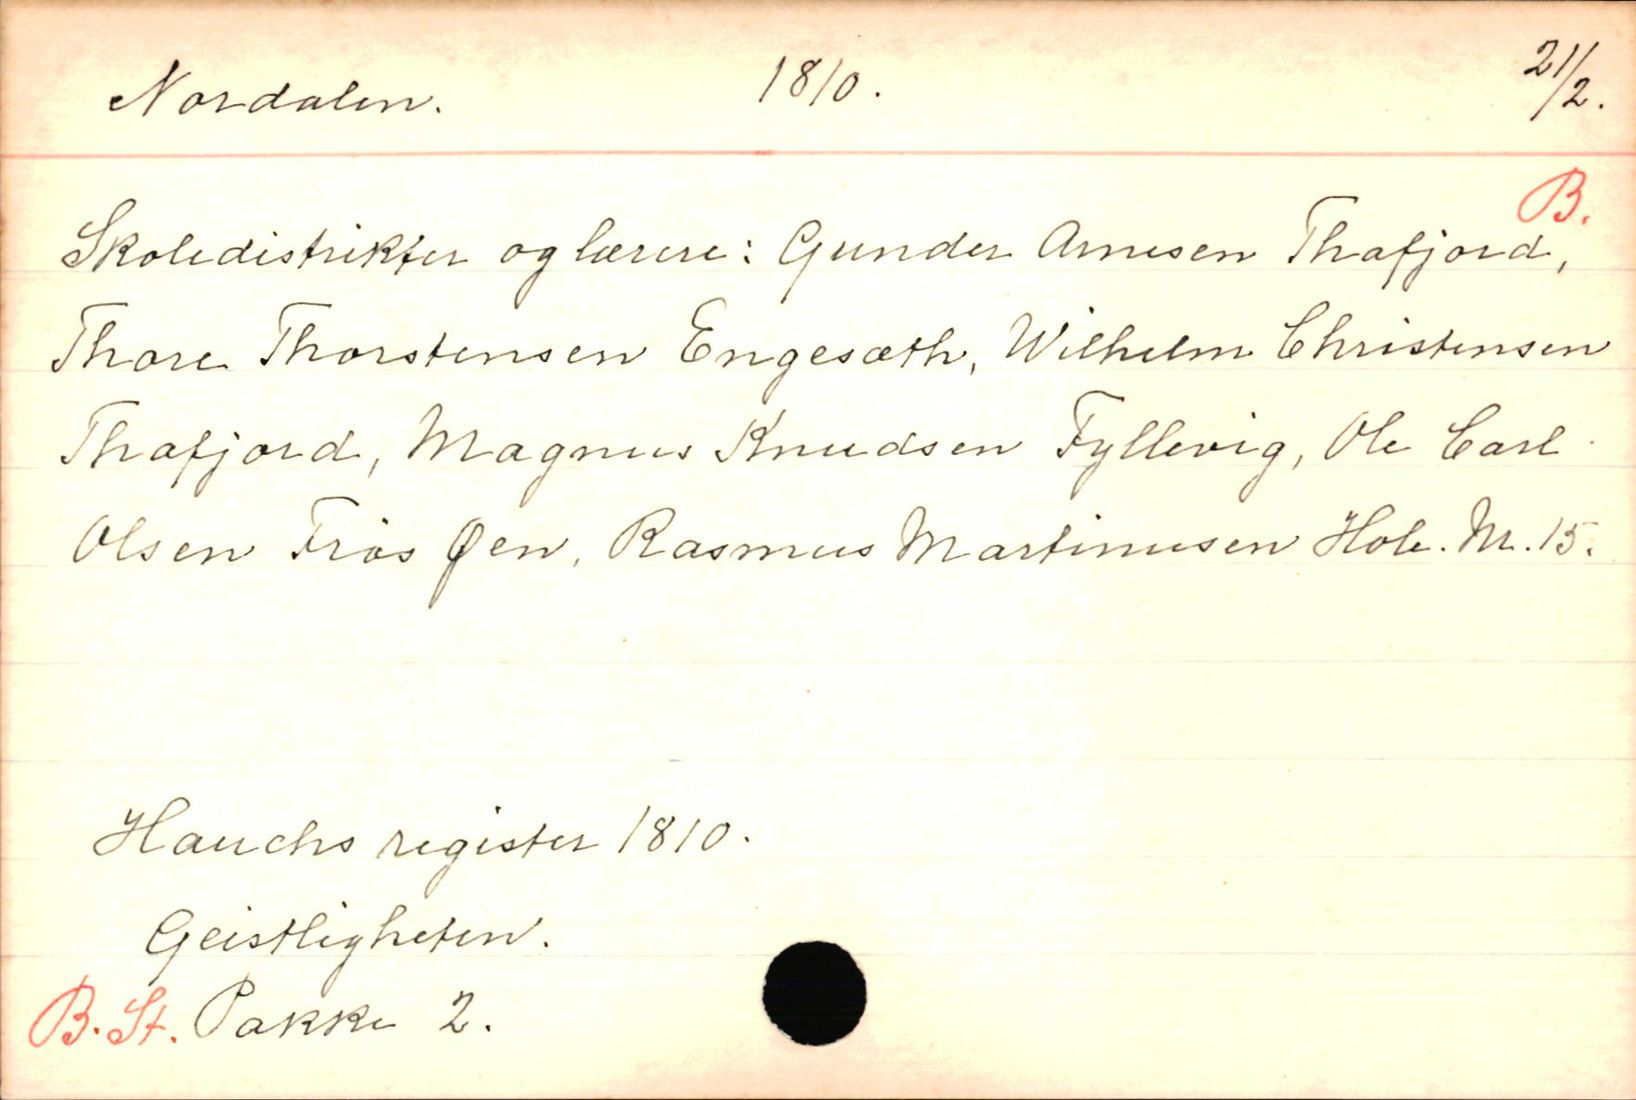 Nordalen. 1810. 21/2.
B.
Skoledistrikter og lærere: Gunder Arnesen Thafjord,
Thore Thorstensen Engesæth, Wilhelm Christensen
Thafjord, Magnus Knudsen Fyllevig, Ole Carl
Olsen Friis Øen, Rasmus Martinusen Hole. Nr. 15.
Hauchs register 1810.
Geistligheten.
B. St. Pakke 2.